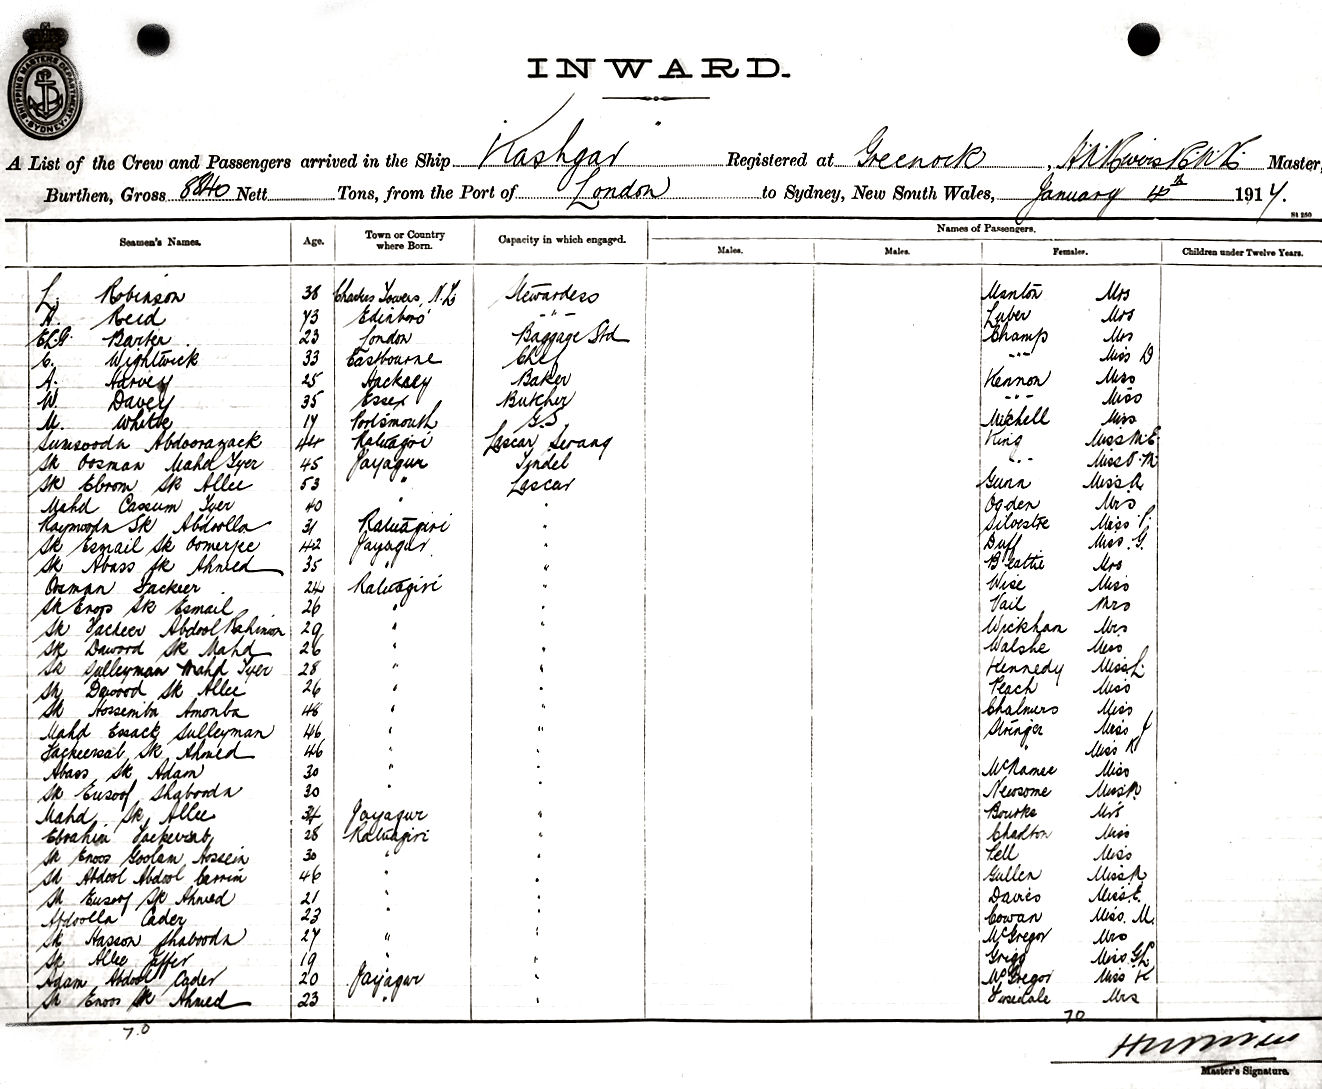 SHIPPING MASTERS DEPARTMENT SYDNEY
INWARD.
A List of the Crew and Passengers arrived in the Ship Kashgar Registered at Greenock, Master,
Burthen, Gross 8840 Nett Tons, from the Port of London to Sydney, New South Wales, January 4th 1914.
St 250
Seamen's Names. Age. Town or Country where Born. Capacity in which engaged. Names of Passengers.
Males. Males. Females. Children under Twelve Years.
L. Robinson 38 Charles Towers, N.Z. Stewardess Manton Mrs
H. Reid 43 Edinboro' -"- Luber Mrs
Barter 23 London Baggage Std Champ Mrs
C. Wightwick 33 Eastbourne Chef -"- Miss D
A. Harvey 25 Hackney Baker Kennon Miss
W. Davey 35 Essex Butcher -"- Miss
M. White 17 Portsmouth G.S. Mitchell Miss
Abdoorazack 44 Ratnagiri Lascar Serang King Miss M.E
Sk Oosman Mahd Iyer 45 Jayagur Tindel " Miss O.M
Sk Ebrom Sk Allee 53 " Lascar Gunn Miss A
Mahd Cassum Iyer 40 " Ogden Mrs
Raymooda Sk Abdoolla 31 Ratnagiri " Silvestre Miss P.
Sk Esmail Sk Oomerjee 42 Jayagur " Duff Miss G.
Sk Abass Sk Ahmed 35 " " Beattie Mrs
Oosman Fackeer 24 Ratnagiri " Wise Miss
Sk Enoos Sk Esmail 26 " " Vail Mrs
Sk Fackeer Abdool Rahimon 29 " " Wickham Mrs
Sk Dawood Sk Mahd 26 " " Walshe Miss
Sk Sulleyman Mahd Iyer 28 " " Kennedy Miss L
Sk Dawood Sk Allee 26 " " Peach Miss
Sk Hossemiba Amonba 48 " " Chalmers Miss
Mahd Essack Sulleyman 46 " " Stringer Miss J
Fackeersab Sk Ahmed 46 " " " Miss K
Abass Sk Adam 30 " " McNamee Miss
Sk Eusoof Shabooda 30 " Newsome Miss
Mahd Sk Allee 34 Jayagur " Bourke Mrs
Ebrahim Fackeersab 28 Ratnagiri " Charlton Miss
Sk Enoos Goolam Hossein 30 " " Fell Miss
Sk Abdool Abdool Carrim 46 " " Gullen Miss A
Sk Eusoof Sk Ahmed 21 " " Davies Miss E.
Abdoolla Cader 23 " " Cowan Miss. M.
Sk Hasson Shabooda 27 " " McGregor Mrs
Sk Allee Jaffer 19 " " Grigg Miss
Adam Abdool Cader 20 Jayagur " McGregor Miss K
Sk Enoos Sk Ahmed 23 " " Mrs
70 70
Master's Signature.